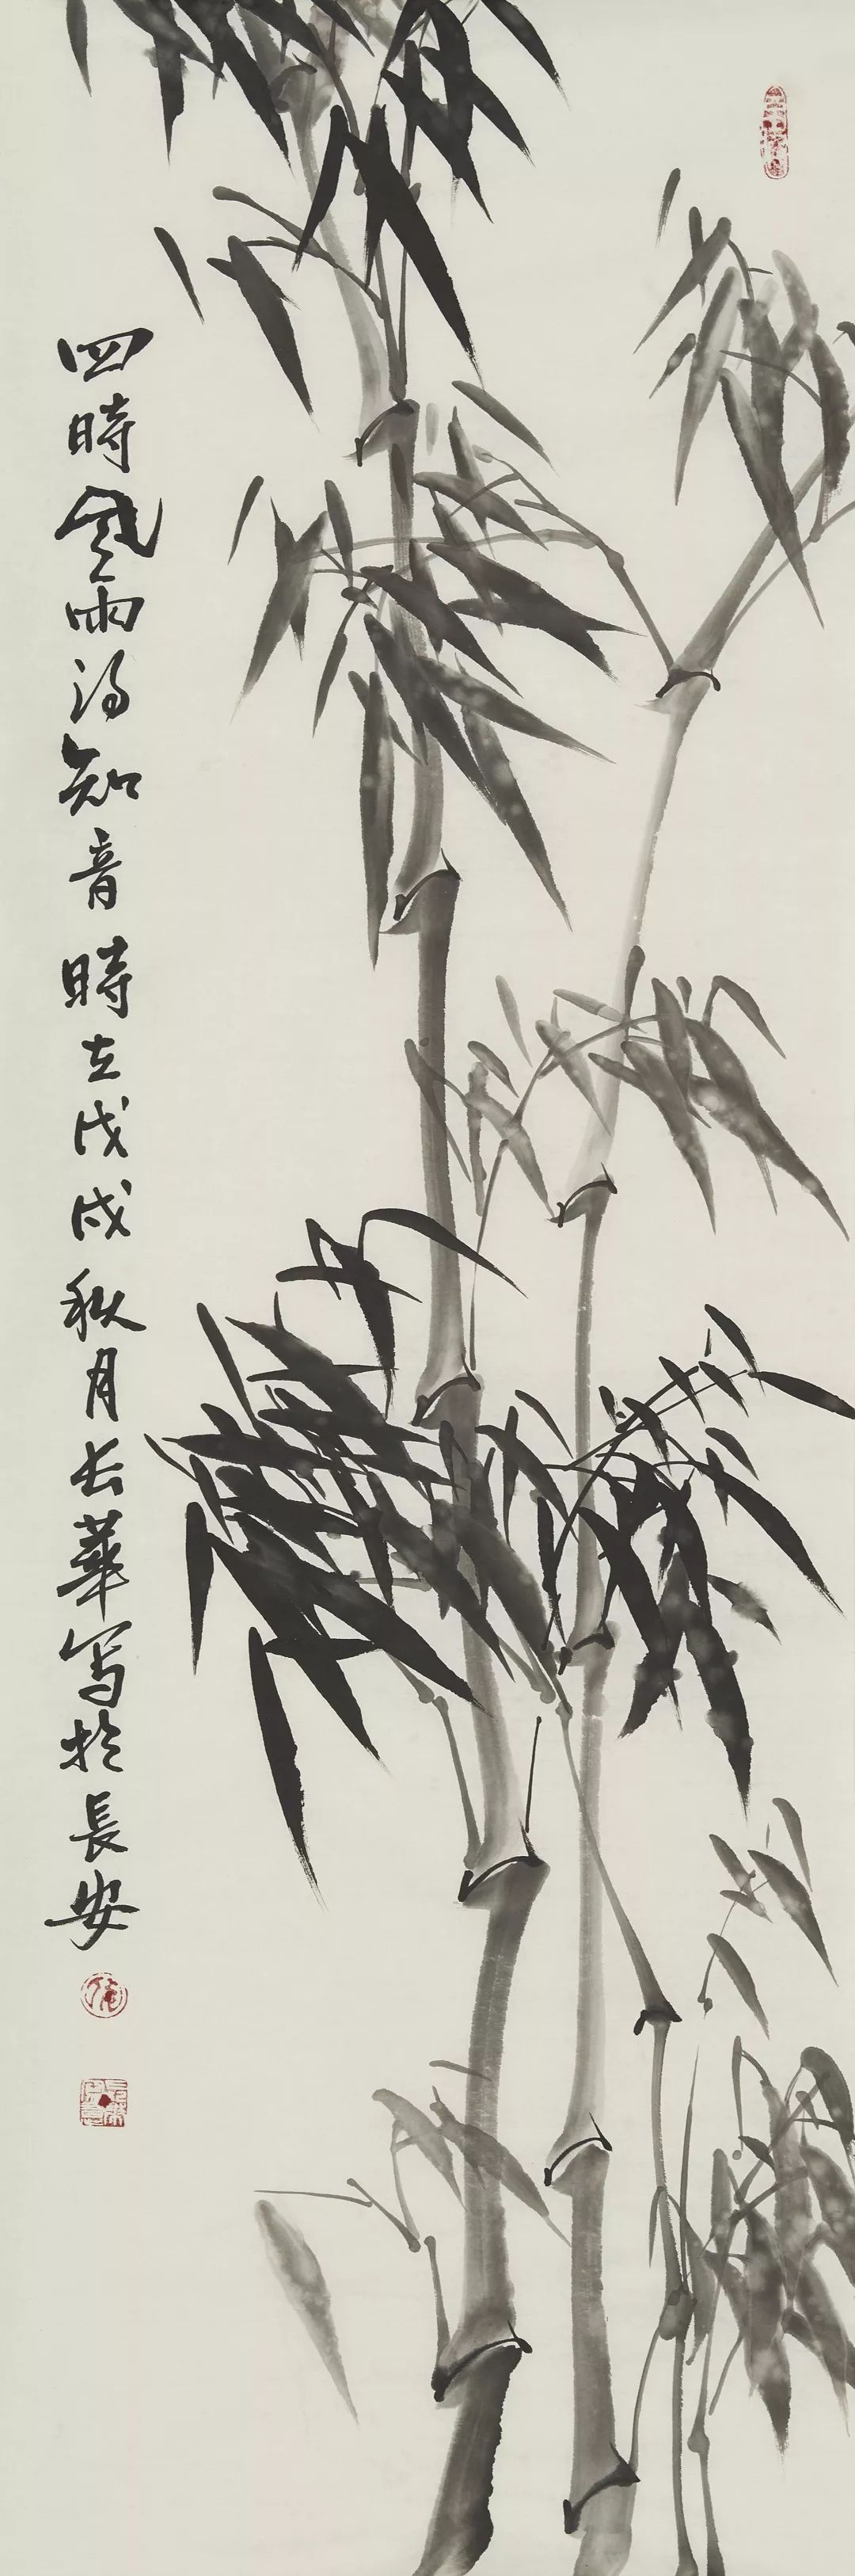 四時風雨得知音時在戊戌秋月长華写於長安